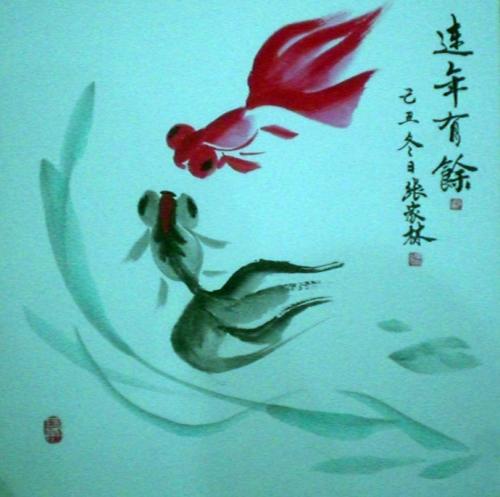 連年有餘
己丑冬日張家林